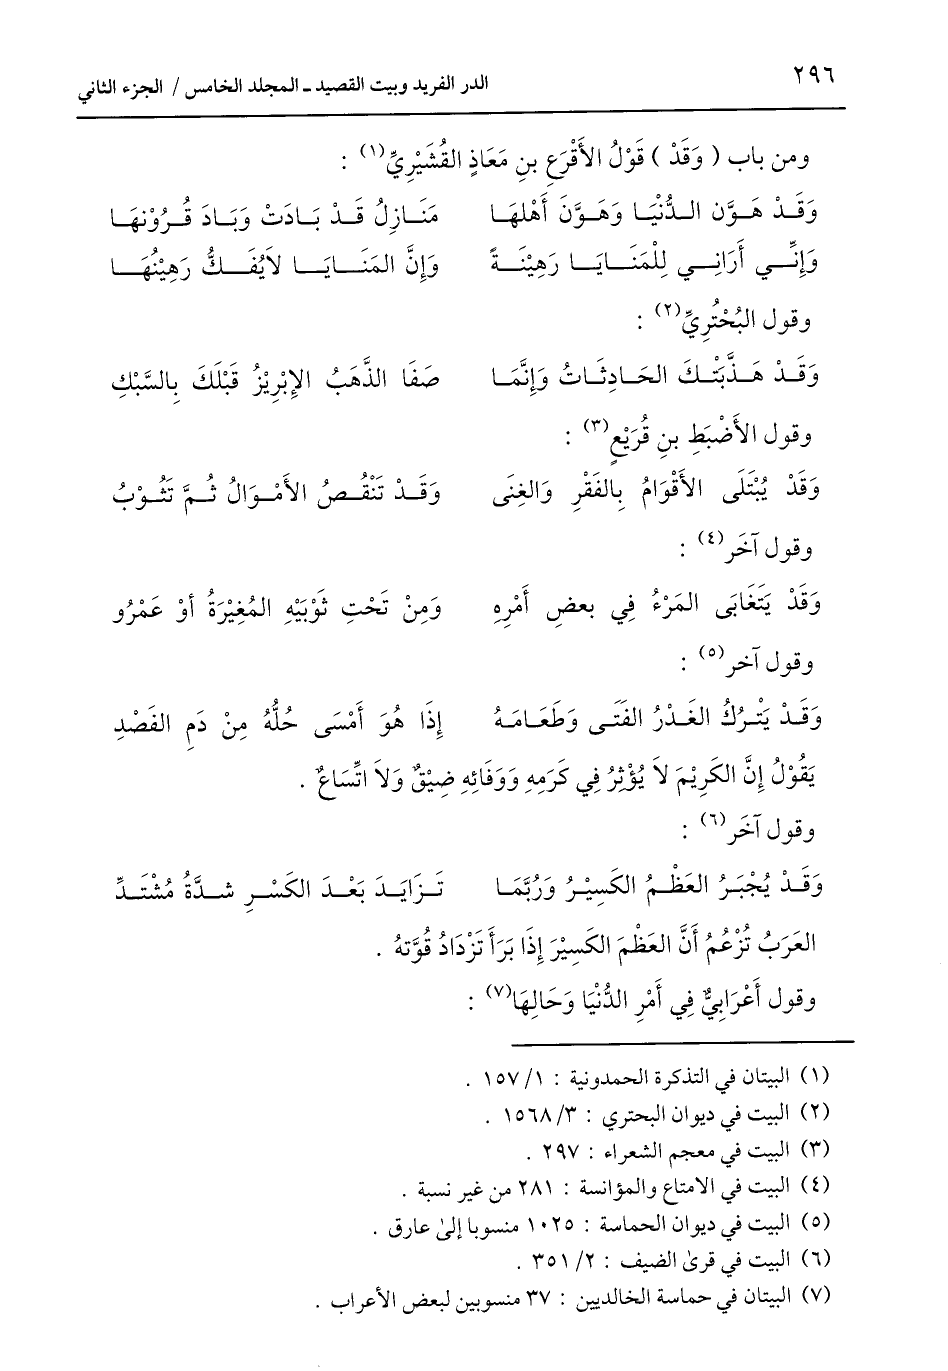 ٢٩٦
الدر الفريد وبيت القصيد ـ المجلد الخامس / الجزء الثاني
ومن باب ( وَقَدْ ) قَوْلُ الأَقْرَعِ بنِ مَعَاذٍ القُشَيْرِيِّ(١) :
وَقَـدْ هَـوَّن الـدُّنْيَـا وَهَـوَّنَ أَهْلهَـا مَنَـازِلُ قَـدْ بَـادَتْ وَبَـادَ قُـرُوْنهَـا
وَإِنِّـي أَرَانِـي لِلْمَنَـايَـا رَهِيْنَـةً وَإِنَّ المَنَـايَـا لاَيُفَـكُّ رَهِيْنُهَـا
وقول البُحْتُرِيِّ(٢) :
وَقَـدْ هَـذَّبَتْـكَ الحَـادِثَـاتُ وَإِنَّمَـا صَفَا الذَّهَبُ الإِبْرِيْزُ قَبْلَكَ بِالسَّبْكِ
وقول الأَضْبَطِ بنِ قُرَيْعٍ(٣) :
وَقَدْ يُبْتَلَى الأَقْوَامُ بِالفَقْرِ وَالغِنَى وَقَـدْ تَنْقُـصُ الأَمْـوَالُ ثُـمَّ تَثُـوْبُ
وقول آخَر(٤) :
وَقَدْ يَتَغَابَى المَرْءُ فِي بعضِ أَمْرِهِ وَمِنْ تَحْتِ ثَوْبَيْهِ المُغِيْرَةُ أوْ عَمْرُو
وقول آخر(٥) :
وَقَـدْ يَتْـرُكُ الغَـدْرُ الفَتَـى وَطَعَامَـهُ إِذَا هُوَ أَمْسَى حُلُّهُ مِنْ دَمِ الفَصْدِ
يَقُوْلُ إِنَّ الكَرِيْمَ لاَ يُؤْثِرُ فِي كَرَمِهِ وَوَفَائِهِ ضِيْقٌ وَلاَ اتِّسَاعٌ .
وقول آخَر(٦) :
وَقَـدْ يُجْبَـرُ العَظْـمُ الكَسِيْـرُ وَرُبَّمَـا تَـزَايَـدَ بَعْـدَ الكَسْـرِ شـدَّةُ مُشْتَـدِّ
العَرَبُ تُزْعُمُ أَنَّ العَظْمَ الكَسِيْرَ إِذَا بَرَأَ تَزْدَادُ قُوَّتهُ .
وقول أَعْرَابِيٌّ فِي أَمْرِ الدُّنْيَا وَحَالِهَا(٧) :
(١) البيتان في التذكرة الحمدونية : ١/ ١٥٧ .
(٢) البيت في ديوان البحتري : ٣/ ١٥٦٨ .
(٣) البيت في معجم الشعراء : ٢٩٧ .
(٤) البيت في الامتاع والمؤانسة : ٢٨١ من غير نسبة .
(٥) البيت في ديوان الحماسة : ١٠٢٥ منسوبا إلىٰ عارق .
(٦) البيت في قرىٰ الضيف : ٢/ ٣٥١ .
(٧) البيتان في حماسة الخالديين : ٣٧ منسوبين لبعض الأعراب .